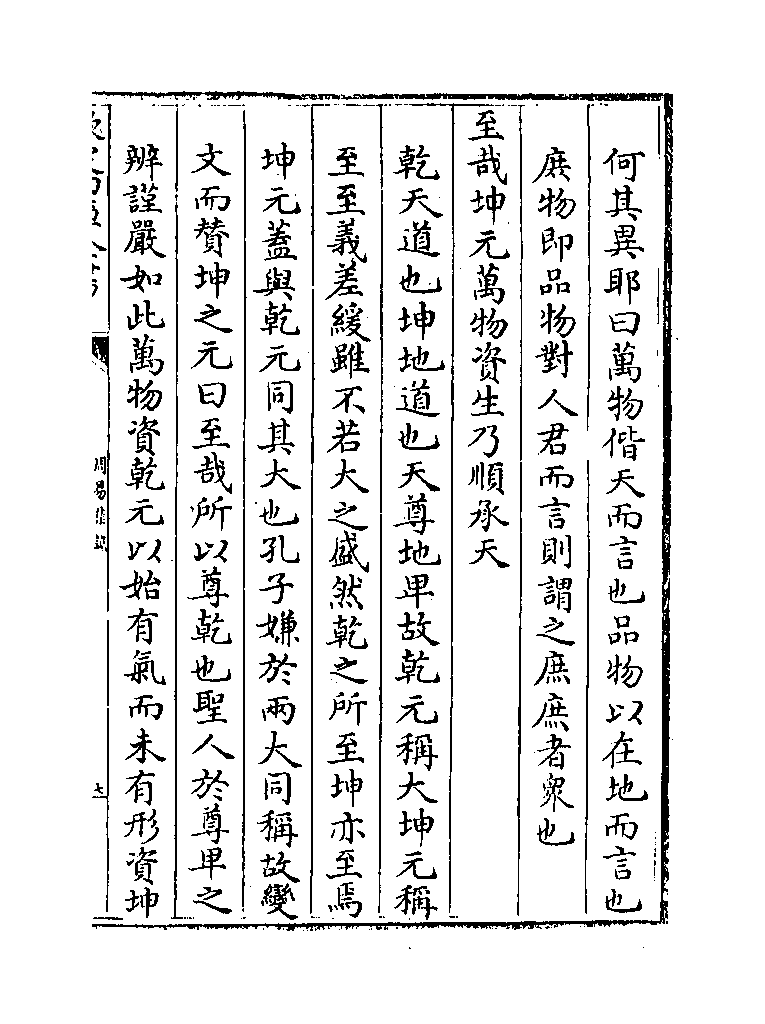 何其異耶曰萬物偕天而言也品物以在地而言也
庶物即品物對人君而言則謂之庶庶者衆也
至哉坤元萬物資生乃順承天
乾天道也坤地道也天尊地卑故乾元稱大坤元稱
至至義差緩雖不若大之盛然乾之所至坤亦至焉
坤元蓋與乾元同其大也孔子嫌於兩大同稱故變
文而賛坤之元曰至哉所以尊乾也聖人於尊卑之
辨謹嚴如此萬物資乾元以始有氣而未有形資坤
周易